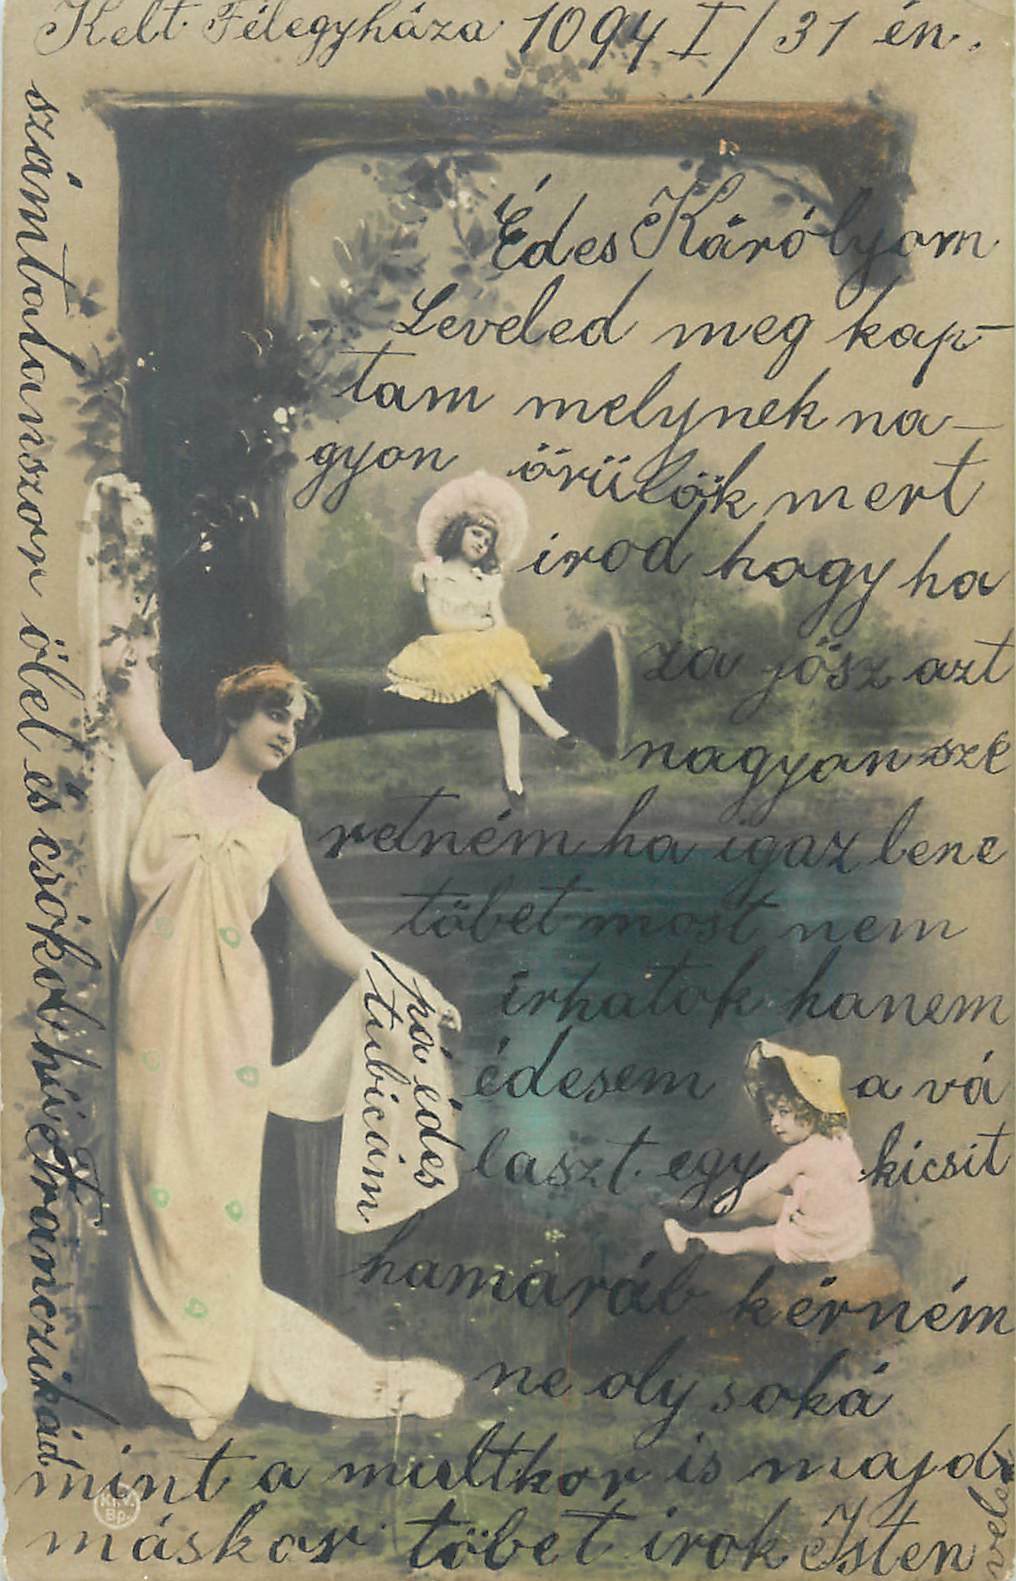 Kelt Félegyháza 1094 I/31 én.
Édes Kárólyom
Leveled meg kap-
tam melynek na-
gyon örülök mert
irod hogy ha
za jősz azt
nagyon sze
retném ha igaz lene
töbet most nem
irhatok hanem
édesem a vá
laszt egy kicsit
hamaráb kérném
ne oly soká
mint a multkor is majd
máskor töbet irok Isten
veled
számtalanszor ölel és csókol hű Franczikád
pá édes
tubicám
KT.V.
Bp.